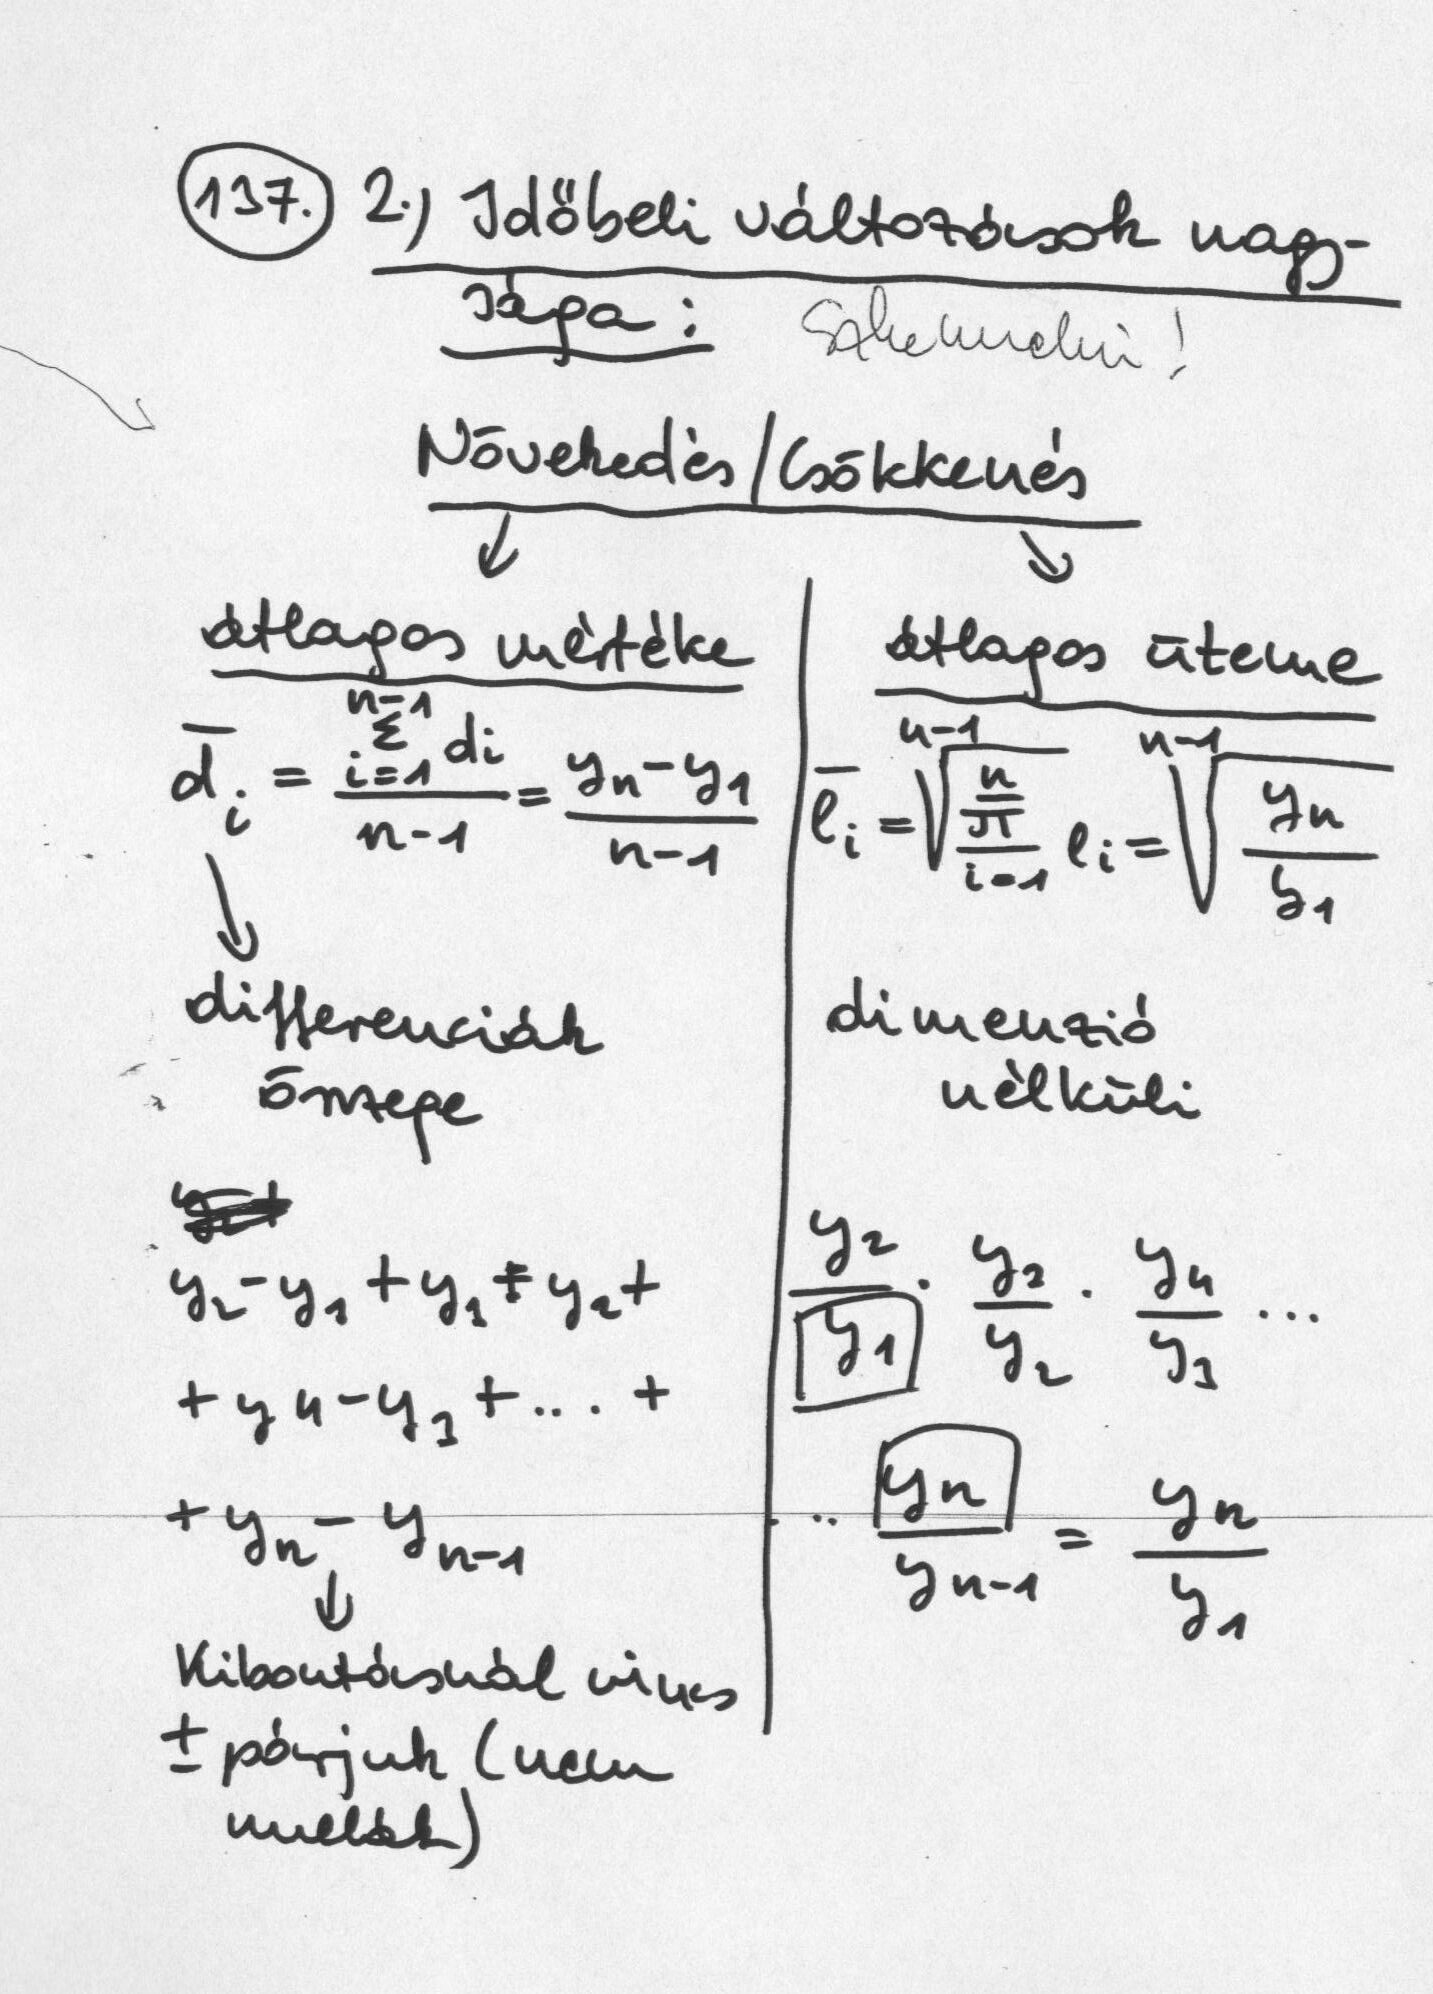 137. 2.) Időbeli változások nagy-
sága:
Növekedés/Csökkenés
átlagos mértéke
d̄i = Σ(i=1, n-1) di / (n-1) = (yn - y1) / (n-1)
differenciák
összege
y2 - y1 + y3 - y2 +
+ y4 - y3 + ... +
+ yn - yn-1
Kibontásnál nincs
± párjuk (nem
nullák)
átlagos üteme
l̄i = ⁿ⁻¹√ Π(i=1, n) li = ⁿ⁻¹√ yn / y1
dimenzió
nélküli
y2/y1 · y3/y2 · y4/y3 ...
.. yn/yn-1 = yn/y1